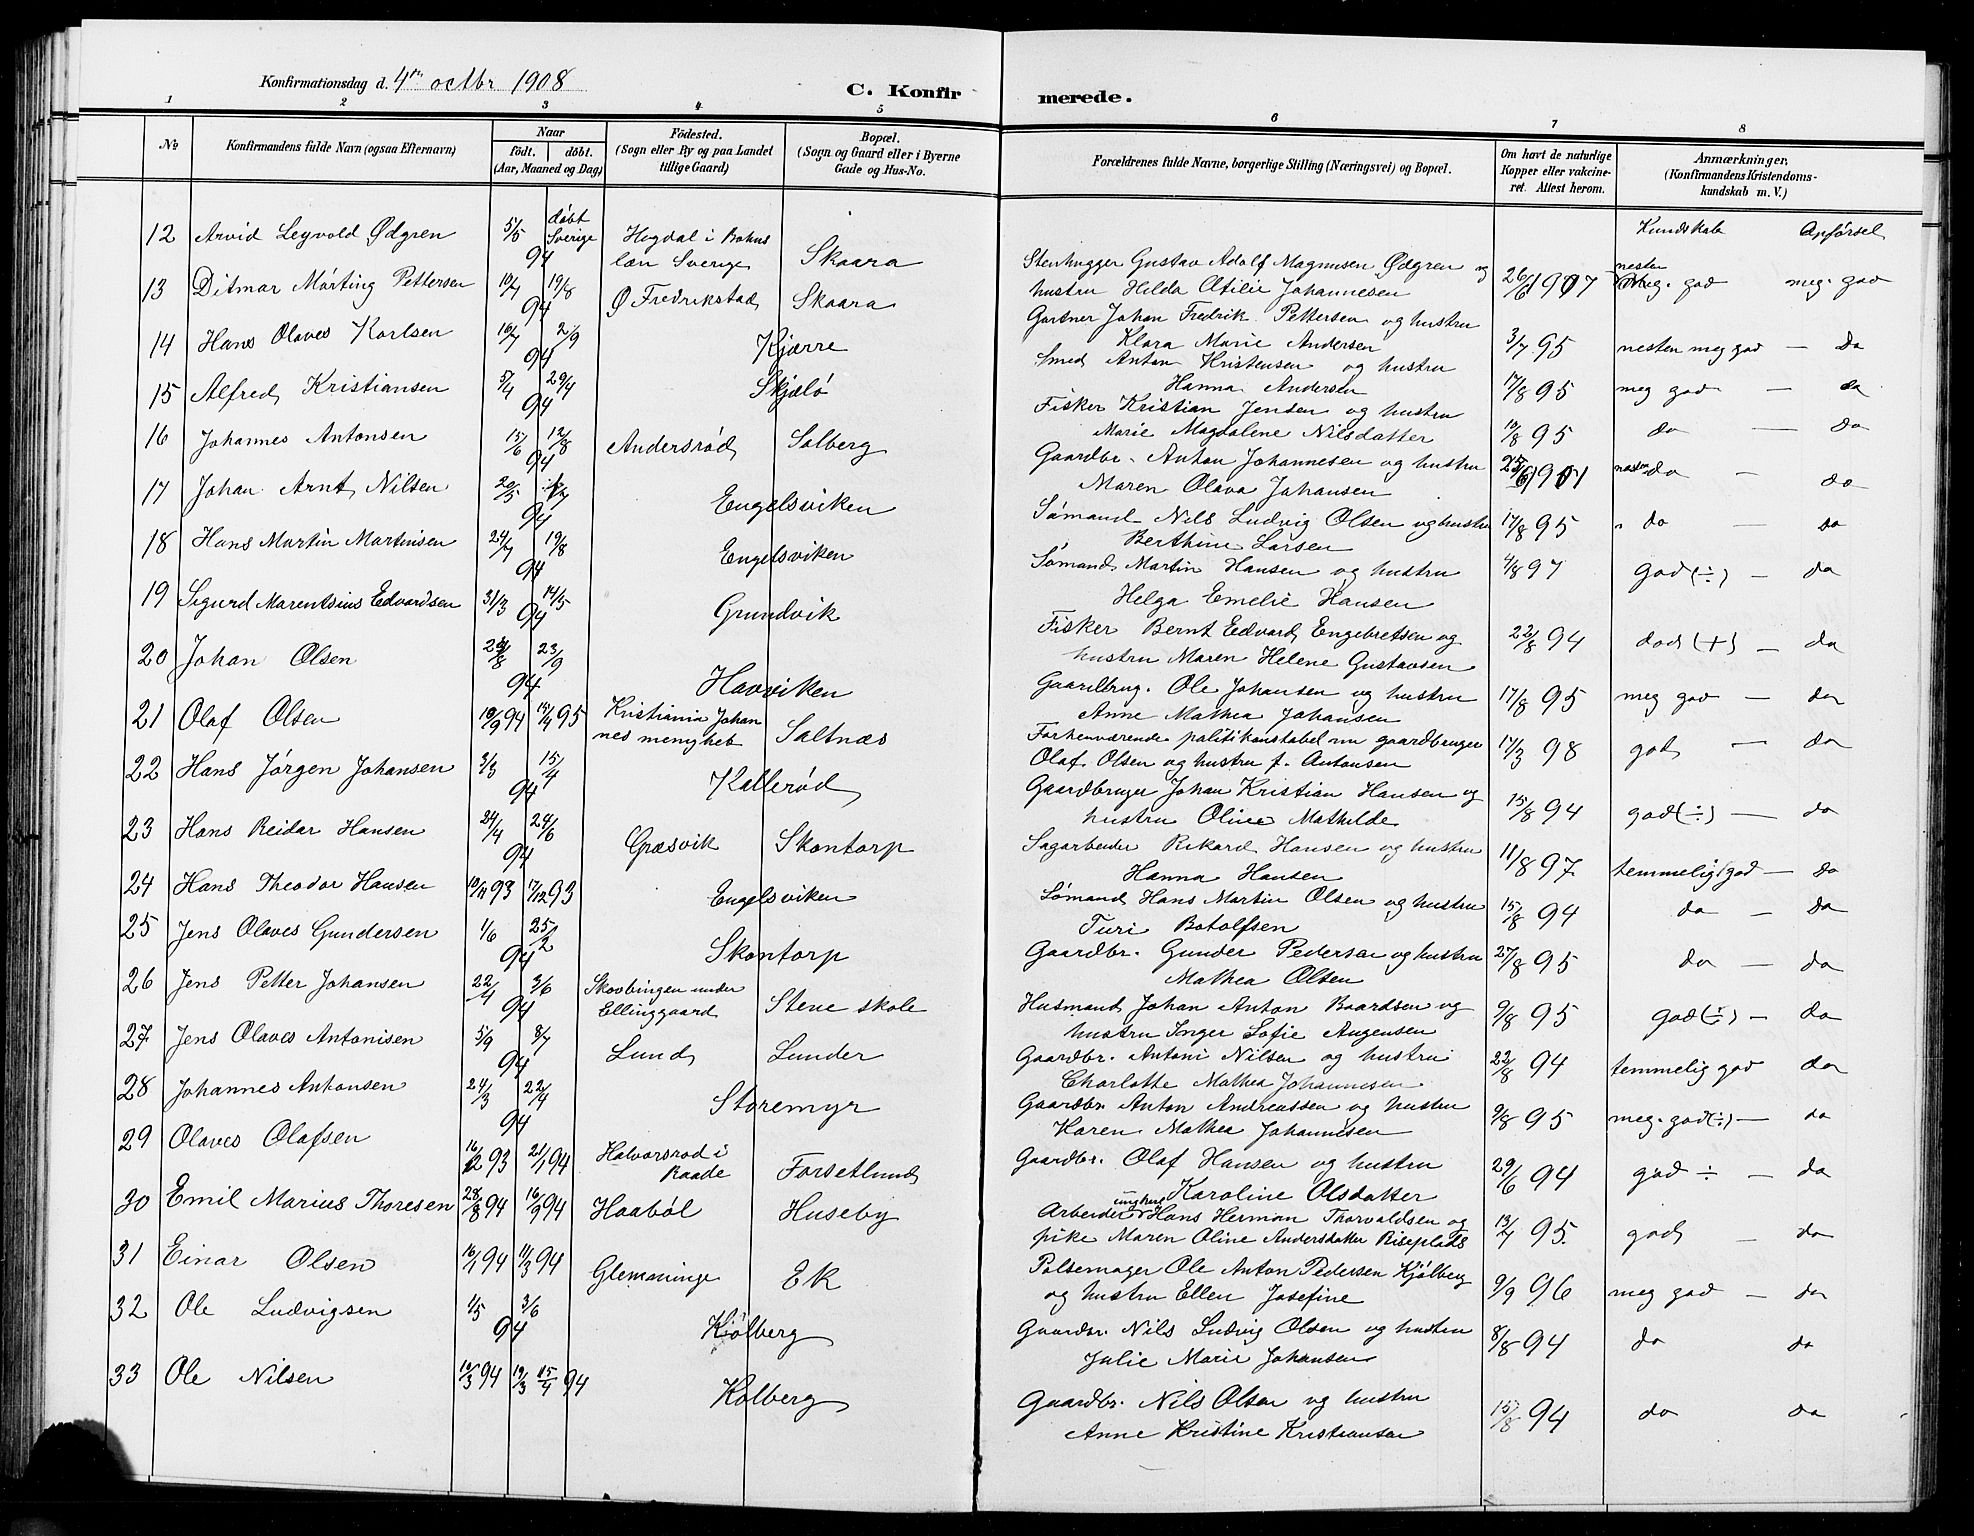 Konfirmationsdag d. 4de octbr 1908
C. Konfirmerede.
1 2 3 4 5 6 7 8
No
Konfirmandens fulde Navn (ogsaa Efternavn)
Naar
født. døbt.
(Aar, Maaned og Dag)
Födested.
(Sogn eller By og paa Landet
tillige Gaard)
Bopæl.
(Sogn og Gaard eller i Byerne
Gade og Hus-No.
Forældrenes fulde Navne, borgerlige Stilling (Næringsvei) og Bopæl.
Om havt de naturlige
Kopper eller vakcine-
ret. Attest herom.
Anmærkninger,
(Konfirmandens Kristendoms-
kundskab m. V.)
Kundskab Opførsel
12 Arvid Leyvold Ødgren 5/5 94 døbt Sverige Hogdal i Bohus
län Sverige Skaara Stenhugger Gustav Adolf Magnusen Ødgren og
hustru Hilda Otilie Johannesen 26/6 1907 nesten meg. god meg. god
13 Ditmar Mórting Pettersen 10/7 94 19/8 Ø Fredrikstad Skaara Gartner Johan Fredrik Pettersen og hustru
Klara Marie Andersen 3/7 95 nesten meg god — Do
14 Hans Olaves Karlsen 16/7 94 2/9 Kjærre Smed Anton Kristensen og hustru
Hanna Andersen 17/8 95 meg god — do
15 Alfred Kristiansen 5/4 94 29/4 Skjælö Fisker Kristian Jensen og hustru
Marie Magdalene Nilsdatter 19/8 95 do — do
16 Johannes Antonsen 15/6 94 12/8 Andersrød Solberg Gaardbr. Anton Johannesen og hustru
Maren Olava Johansen 1901 nesten do — do
17 Johan Arnt Nilsen 20/5 94 Engelsviken Sømand Nils Ludvig Olsen og hustru
Berthine Larsen 17/8 95 " do — do
18 Hans Martin Martinsen 24/7 94 19/8 Engelsviken Sømand Martin Hansen og hustru
Helga Emelie Hansen 4/8 97 god (÷) — do
19 Sigurd Marentsius Edvardsen 31/3 94 14/5 Grundvik Fisker Bernt Edvard Engebretsen og
hustru Maren Helene Gustavsen 22/8 94 god (+) — do
20 Johan Olsen 94 23/9 Havviken Gaardbrug. Ole Johansen og hustru
Anne Mathea Johansen 17/8 95 meg god — do
21 Olaf Olsen 10/9 94 15/4 95 Kristiania Johan
nes menighet Saltnæs Forhenværende politikonstabel nu gaardbruger
Olaf Olsen og hustru f. Antonsen 17/3 98 god — do
22 Hans Jørgen Johansen 3/3 94 15/4 Kallerød Gaardbruger Johan Kristian Hansen og
hustru Oline Mathilde 15/8 94 god (÷) — do
23 Hans Reidar Hansen 24/4 94 24/6 Græsvik Skontorp Sagarbeider Rikard Hansen og hustru
Hanna Hansen 11/8 97 temmelig god — do
24 Hans Theodor Hansen 10/12 93 17/12 93 Engelsviken Sømand Hans Martin Olsen og hustru
Turi Botolfsen 15/8 94 do — do
25 Jens Olaves Gundersen 1/6 94 25/2 Skontorp Gaardbr. Gunder Pedersen og hustru
Mathea Olsen 27/8 95 do — do
26 Jens Petter Johansen 22/4 94 3/6 Skovbingen under
Ellinggaard Stene skole Husmand Johan Anton Baardsen og
hustru Inger Sofie Augensen 9/8 95 god (÷) — do
27 Jens Olaves Antonisen 5/9 94 8/7 Lund Lunder Gaardbr. Antoni Nilsen og hustru
Charlotte Mathea Johannesen 22/8 94 temmelig god do
28 Johannes Antonsen 24/3 94 22/4 Storemyr Gaardbr. Anton Andreassen og hustru
Karen Mathea Johannesen 9/8 95 meg. god (÷) — do
29 Olaves Olafsen 16/12 93 21/1 94 Halvorsrod i
Raade Forsetlund Gaardbr. Olaf Hansen og hustru
Karoline Olsdatter 29/6 94 god ÷ — do
30 Emil Marius Thoresen 28/8 94 16/9 94 Haabøl Huseby Arbeider ungkarl Hans Herman Thorvaldsen og
pike Maren Oline Andersdatter Riseplads 13/7 95. god — do
31 Einar Olsen 16/1 94 11/3 94 Glemminge Ek Pølsemager Ole Anton Pedersen Kjølberg
og hustru Ellen Josefine 9/9 96 meg god — do
32 Ole Ludvigsen 1/5 94 3/6 Kjölberg Gaardbr. Nils Ludvig Olsen og hustru
Julie Marie Johansen 8/8 94 do do
33 Ole Nilsen 10/3 94 19/3 15/4 94 Kolberg Gaardbr. Nils Olsen og hustru
Anne Kristine Kristiansen 15/8 94 do do